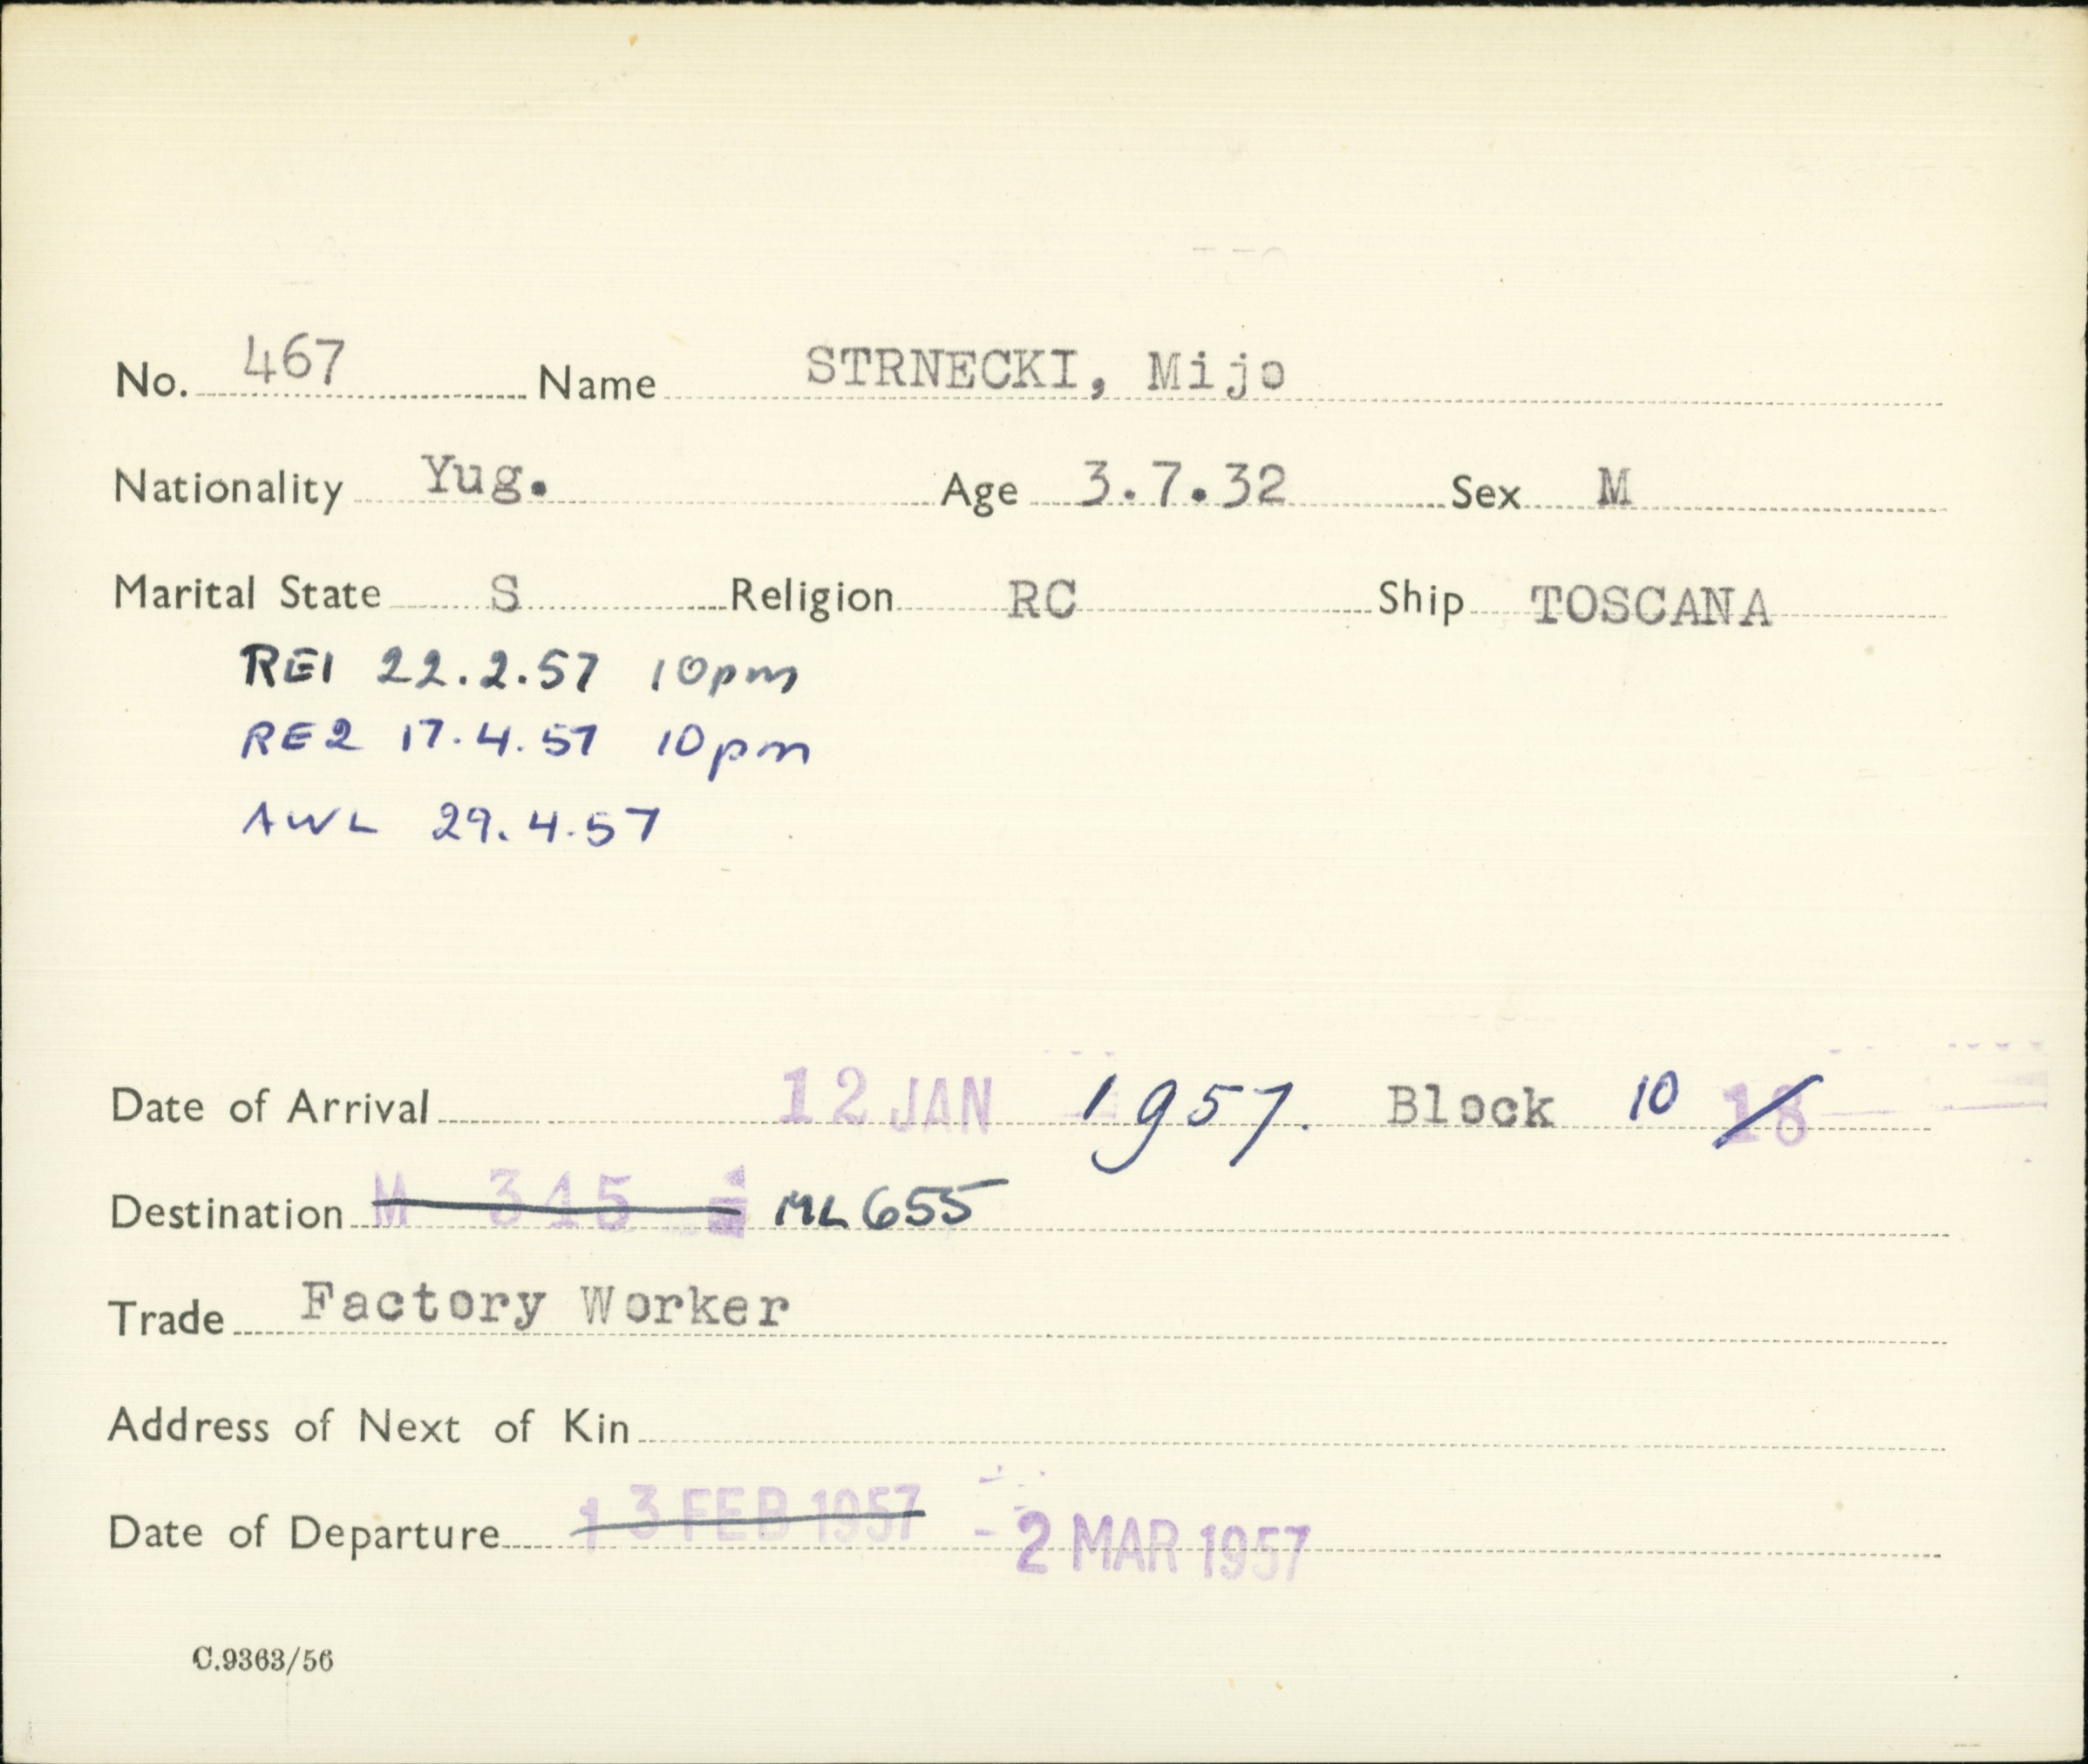 No. 467 Name STRNECKI, Mijo
Nationality Yug. Age 3.7.32 Sex M
Marital State S Religion RC Ship TOSCANA
RE1 22.2.57 10pm
RE2 17.4.57 10pm
AWL 29.4.57
Date of Arrival 12 JAN 1957. Block 10 18
Destination M 345 ML 655
Trade Factory Worker
Address of Next of Kin
Date of Departure 13 FEB 1957 - 2 MAR 1957
C.9363/56